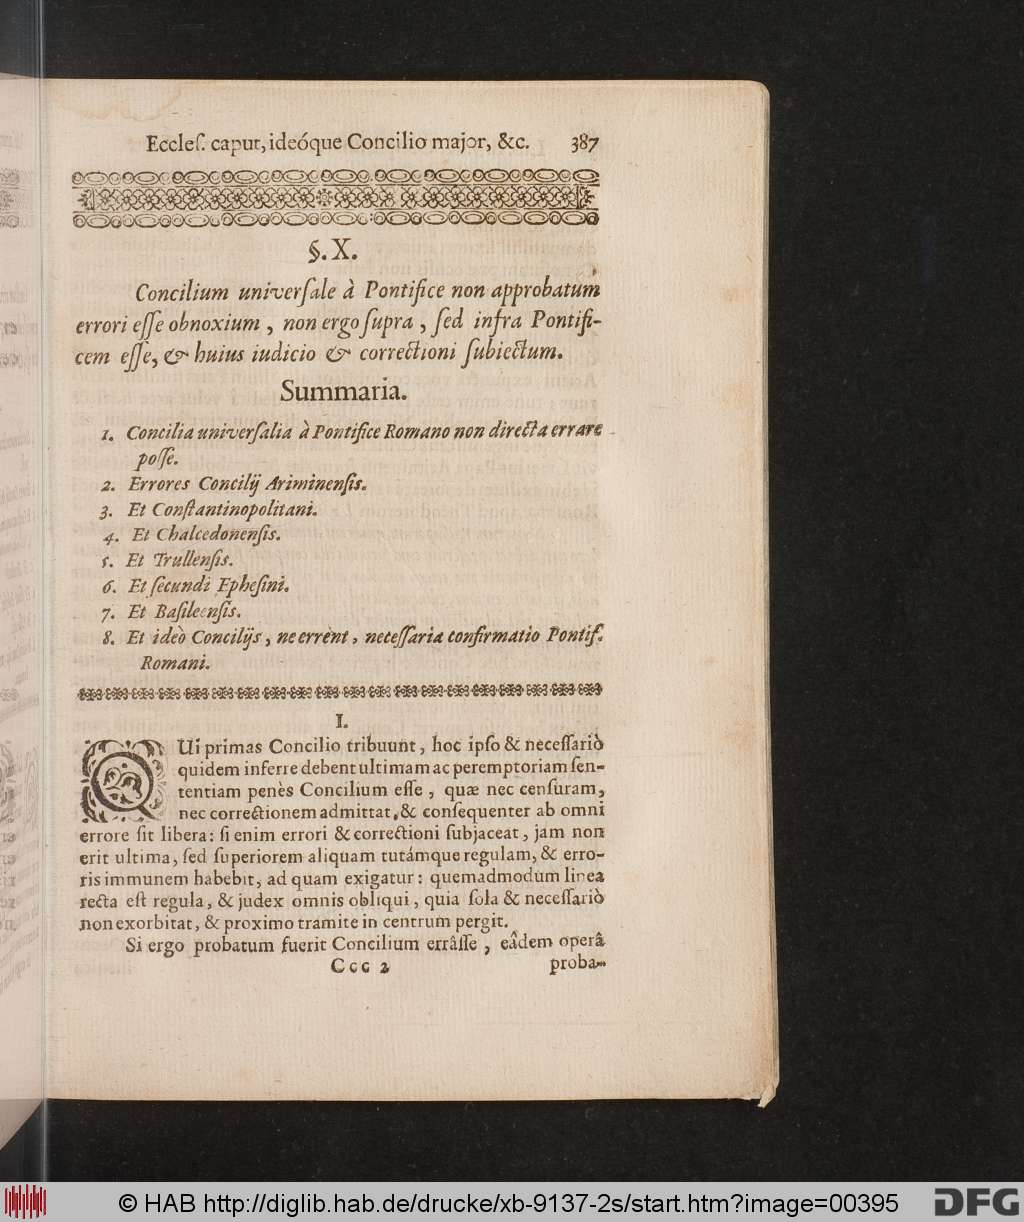 Eccleſ. caput, ideóque Concilio major, &c. 387
§. X.
Concilium univerſale à Pontifice non approbatum
errori eſſe obnoxium, non ergo ſupra, ſed infra Pontifi-
cem eſſe, & huius iudicio & correctioni ſubiectum.
Summaria.
1. Concilia univerſalia à Pontifice Romano non directa errare
poſſe.
2. Errores Concilij Ariminenſis.
3. Et Conſtantinopolitani.
4. Et Chalcedonenſis.
5. Et Trullenſis.
6. Et ſecundi Epheſini.
7. Et Baſileenſis.
8. Et ideò Concilijs, ne errent, neceſſaria confirmatio Pontif.
Romani.
I.
QUi primas Concilio tribuunt, hoc ipſo & neceſſariò
quidem inferre debent ultimam ac peremptoriam ſen-
tentiam penès Concilium eſſe, quæ nec cenſuram,
nec correctionem admittat, & conſequenter ab omni
errore ſit libera: ſi enim errori & correctioni ſubjaceat, jam non
erit ultima, ſed ſuperiorem aliquam tutámque regulam, & erro-
ris immunem habebit, ad quam exigatur: quemadmodum linea
recta eſt regula, & judex omnis obliqui, quia ſola & neceſſariò
non exorbitat, & proximo tramite in centrum pergit.
Si ergo probatum fuerit Concilium errâſſe, eâdem operâ
Ccc 2 proba-
© HAB http://diglib.hab.de/drucke/xb-9137-2s/start.htm?image=00395 DFG